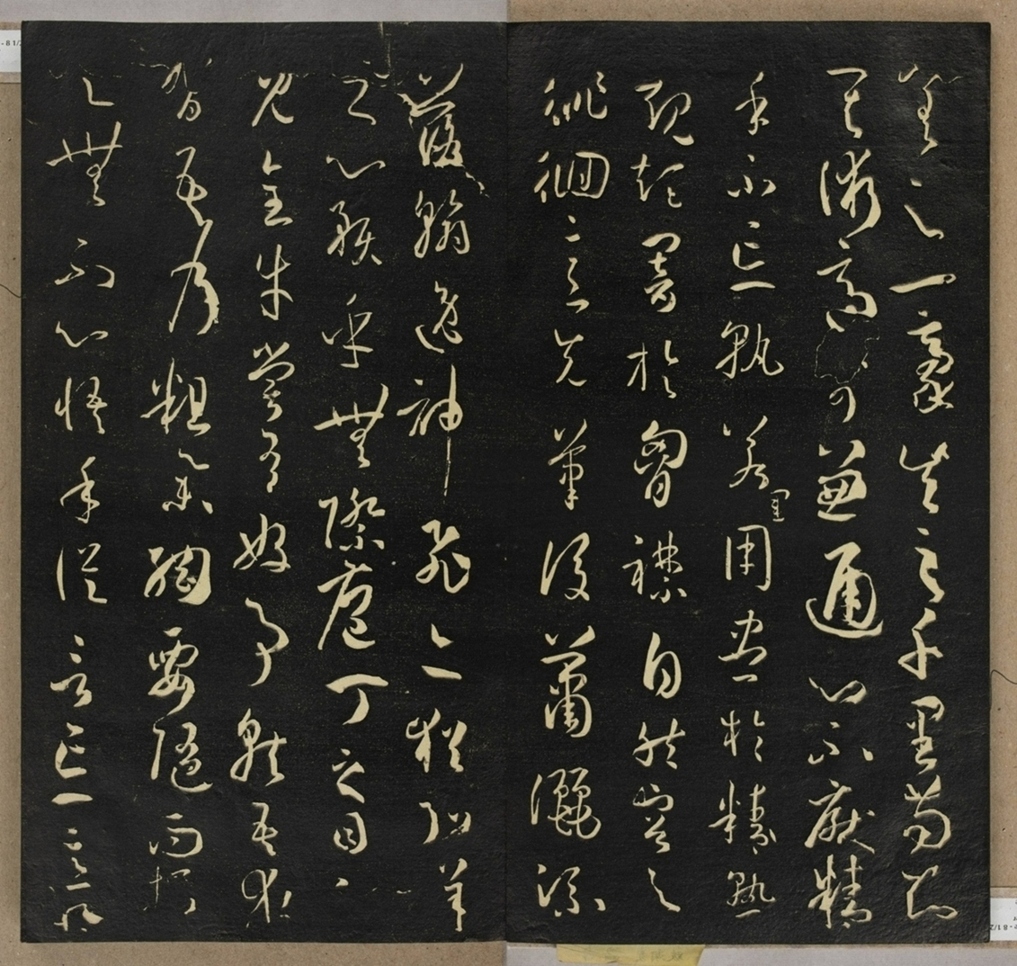 差之一豪失之千里苟知
其術適可兼通心不厭精
手不忘熟若運用盡於精熟
規矩闇於胷襟自然容與
徘徊意先筆後瀟灑流
落翰逸神飛亦猶弘羊
之心預乎無際庖丁之目不
見全牛嘗有好事就吾求
習吾乃粗舉綱要隨而授
之無不心悟手從言忘意得